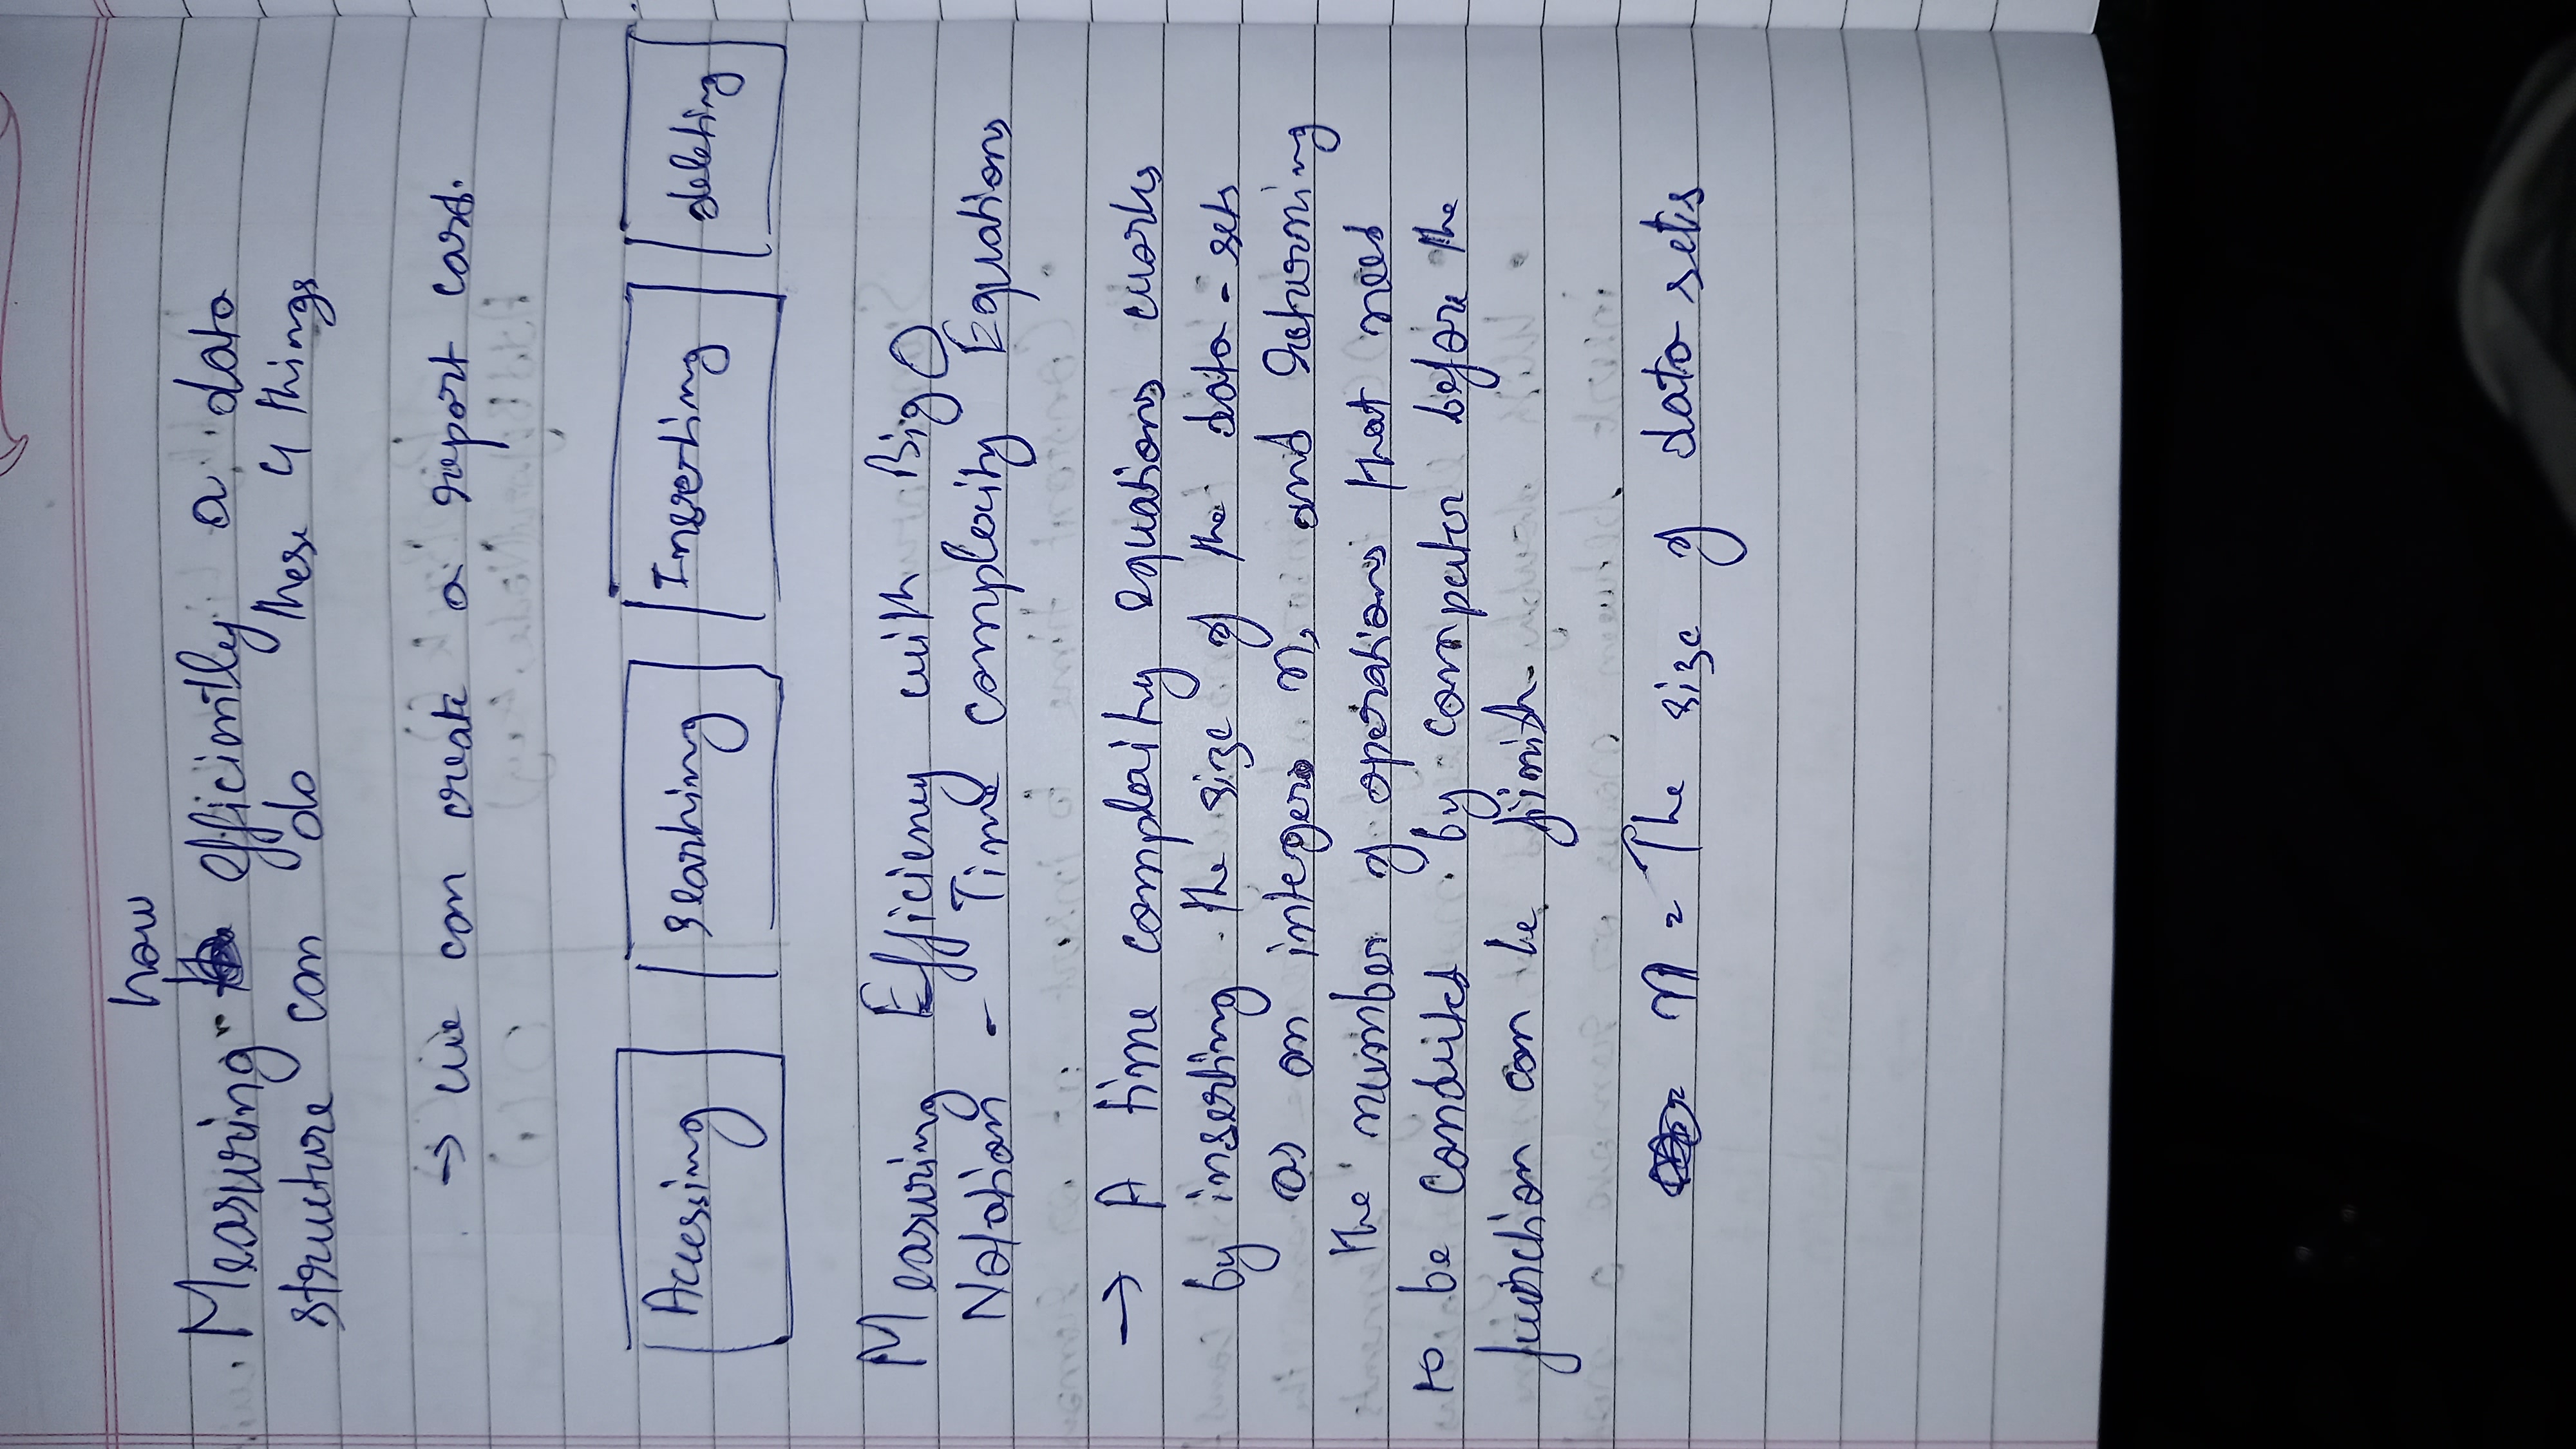 how
Measuring efficiently a data
structure can do these 4 things
→ we can create a report card.
Accessing Searhing Inserting deleting
Measuring Efficiency with Big O
Notation - Time complexity Equations
→ A time complexity equations works
by inserting the size of the data-sets
as an integer n, and returning
the number of operations that need
to be conducted by computer before the
function can be finish.
n = The size of data sets